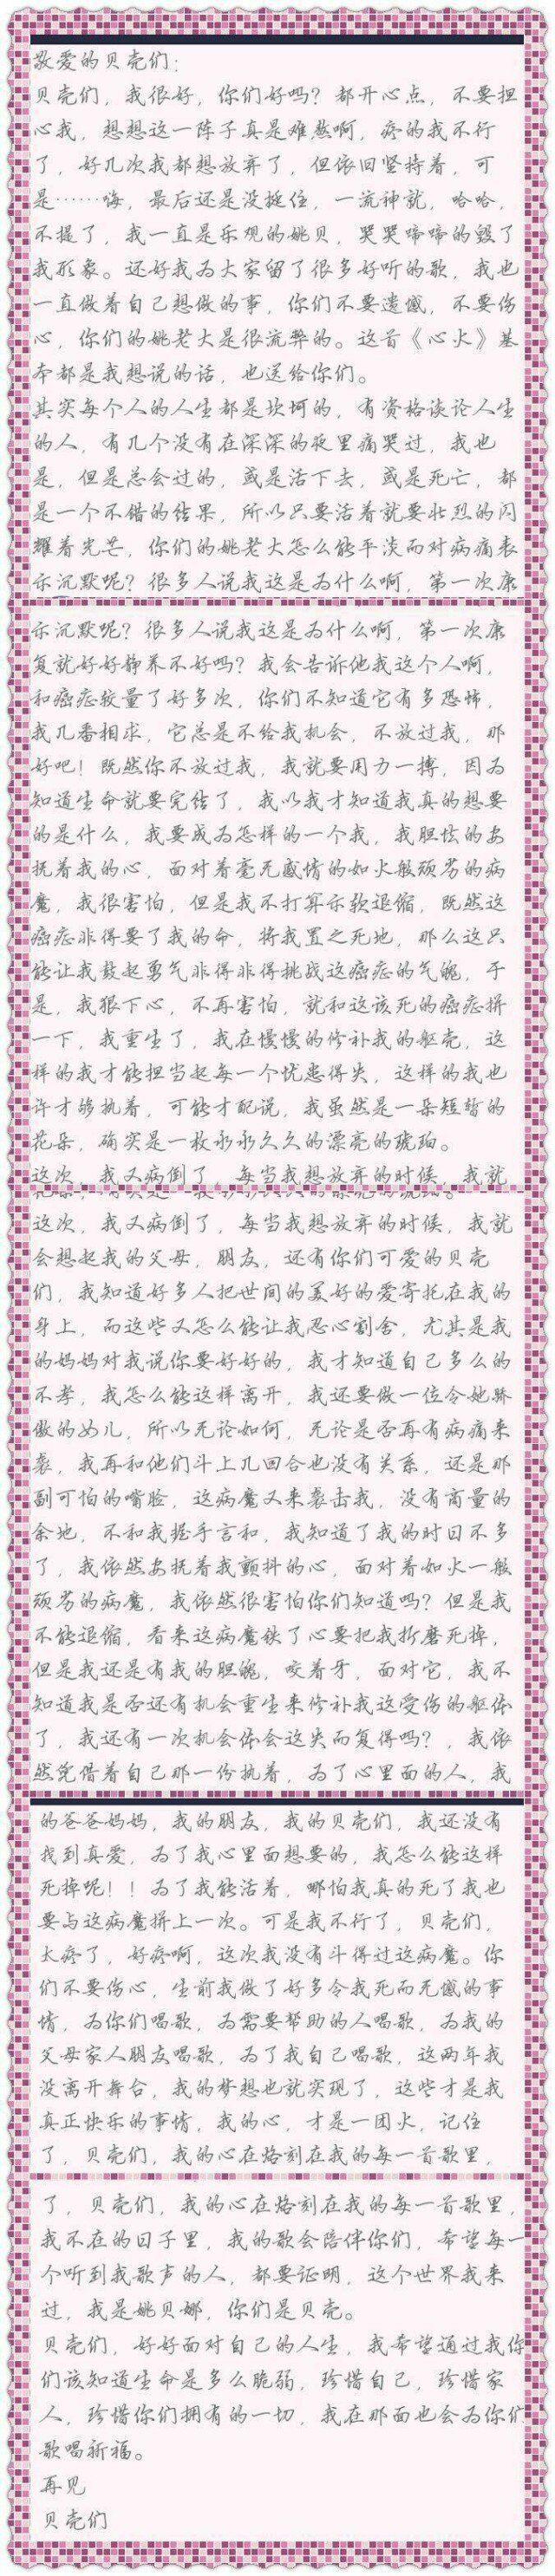 敬爱的贝壳们：
贝壳们，我很好，你们好吗？都开心点，不要担
心我，想想这一阵子真是难熬啊，疼的我不行
了，好几次我都想放弃了，但依旧坚持着，可
是……嗨，最后还是没挺住，一流神就，哈哈，
不提了，我一直是乐观的姚贝，哭哭啼啼的毁了
我形象。还好我为大家留了很多好听的歌，我也
一直做着自己想做的事，你们不要遗憾，不要伤
心，你们的姚老大是很流弊的。这首《心火》基
本都是我想说的话，也送给你们。
其实每个人的人生都是坎坷的，有资格谈论人生
的人，有几个没有在深深的夜里痛哭过，我也
是，但是总会过的，或是活下去，或是死亡，都
是一个不错的结果，所以只要活着就要壮烈的闪
耀着光芒，你们的姚老大怎么能平淡而对病痛表
示沉默呢？很多人说我这是为什么啊，第一次康
示沉默呢？很多人说我这是为什么啊，第一次康
复就好好静养不好吗？我会告诉他我这个人啊，
和癌症较量了好多次，你们不知道它有多恐怖，
我几番相求，它总是不给我机会，不放过我，那
好吧！既然你不放过我，我就要用力一搏，因为
知道生命就要完结了，我以我才知道我真的想要
的是什么，我要成为怎样的一个我，我胆怯的安
抚着我的心，面对着毫无感情的如火般顽劣的病
魔，我很害怕，但是我不打算示软退缩，既然这
癌症非得要了我的命，将我置之死地，那么这只
能让我鼓起勇气非得非得挑战这癌症的气魄，于
是，我狠下心，不再害怕，就和这该死的癌症拼
一下，我重生了，我在慢慢的修补我的躯壳，这
样的我才能担当起每一个忧患得失，这样的我也
许才够执着，可能才配说，我虽然是一朵短暂的
花朵，确实是一枚永永久久的漂亮的琥珀。
这次，我又病倒了，每当我想放弃的时候，我就
这次，我又病倒了，每当我想放弃的时候，我就
会想起我的父母，朋友，还有你们可爱的贝壳
们，我知道好多人把世间的美好的爱寄托在我的
身上，而这些又怎么能让我忍心割舍，尤其是我
的妈妈对我说你要好好的，我才知道自己多么的
不孝，我怎么能这样离开，我还要做一位令她骄
傲的女儿，所以无论如何，无论是否再有病痛来
袭，我再和他们斗上几回合也没有关系，还是那
副可怕的嘴脸，这病魔又来袭击我，没有商量的
余地，不和我握手言和，我知道了我的时日不多
了，我依然安抚着我颤抖的心，面对着如火一般
顽劣的病魔，我依然很害怕你们知道吗？但是我
不能退缩，看来这病魔铁了心要把我折磨死掉，
但是我还是有我的胆魄，咬着牙，面对它，我不
知道我是否还有机会重生来修补我这受伤的躯体
了，我还有一次机会体会这失而复得吗？，我依
然凭借着自己那一份执着，为了心里面的人，我
的爸爸妈妈，我的朋友，我的贝壳们，我还没有
找到真爱，为了我心里面想要的，我怎么能这样
死掉呢！！为了我能活着，哪怕我真的死了我也
要与这病魔拼上一次。可是我不行了，贝壳们，
太疼了，好疼啊，这次我没有斗得过这病魔。你
们不要伤心，生前我做了好多令我死而无憾的事
情，为你们唱歌，为需要帮助的人唱歌，为我的
父母家人朋友唱歌，为了我自己唱歌，这两年我
没离开舞台，我的梦想也就实现了，这些才是我
真正快乐的事情，我的心，才是一团火，记住
了，贝壳们，我的心在烙刻在我的每一首歌里，
了，贝壳们，我的心在烙刻在我的每一首歌里，
我不在的日子里，我的歌会陪伴你们，希望每一
个听到我歌声的人，都要证明，这个世界我来
过，我是姚贝娜，你们是贝壳。
贝壳们，好好面对自己的人生，我希望通过我你
们该知道生命是多么脆弱，珍惜自己，珍惜家
人，珍惜你们拥有的一切，我在那面也会为你们
歌唱祈福。
再见
贝壳们